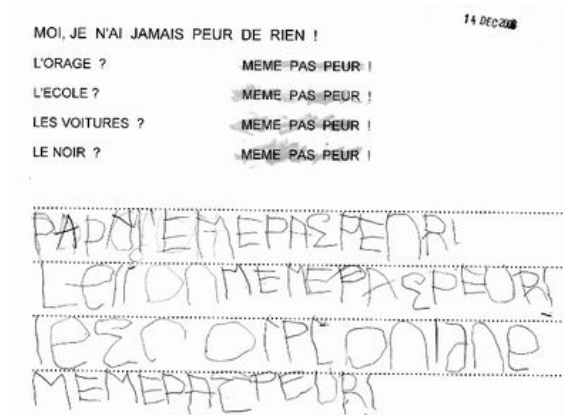 14 DEC
MOI, JE N'AI JAMAIS PEUR DE RIEN !
L'ORAGE ? MEME PAS PEUR !
L'ECOLE ? MEME PAS PEUR !
LES VOITURES ? MEME PAS PEUR !
LE NOIR ? MEME PAS PEUR !
MEMEPASPEUR!
LelionMEMEPASPEUR!
MEMEPASPEUR!